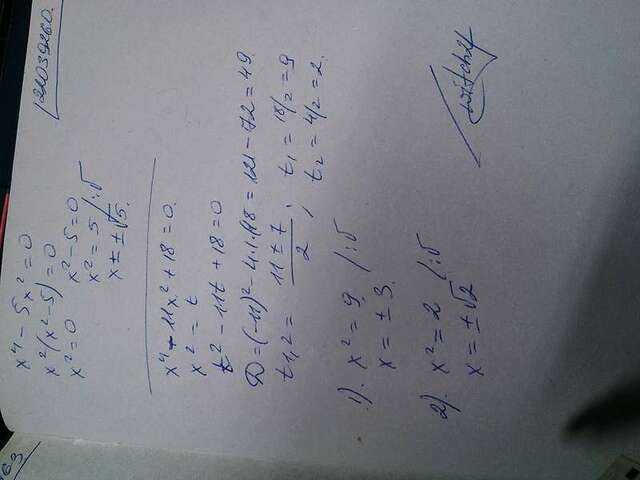 21039260.
x⁴ - 5x² = 0
x²(x² - 5) = 0
x² = 0 x² - 5 = 0
x² = 5 /:√
x = ±√5.
x⁴ - 11x² + 18 = 0.
x² = t
t² - 11t + 18 = 0
D = (-11)² - 4·1·18 = 121 - 72 = 49.
t₁,₂ = 11 ± 7 / 2 , t₁ = 18/2 = 9
t₂ = 4/2 = 2.
1). x² = 9. /:√
x = ± 3.
2). x² = 2 /:√
x = ±√2
163